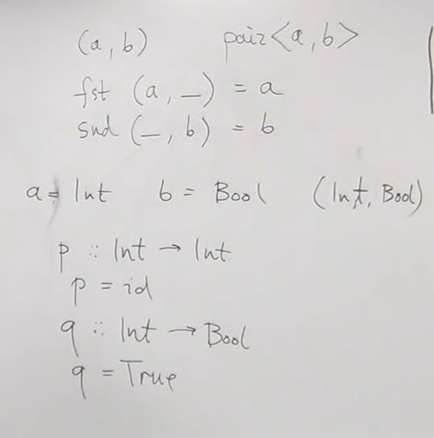 (a, b) pair<a, b>
fst (a, _) = a
snd (_, b) = b
a = Int b = Bool (Int, Bool)
p :: Int → Int
p = id
q :: Int → Bool
q = True